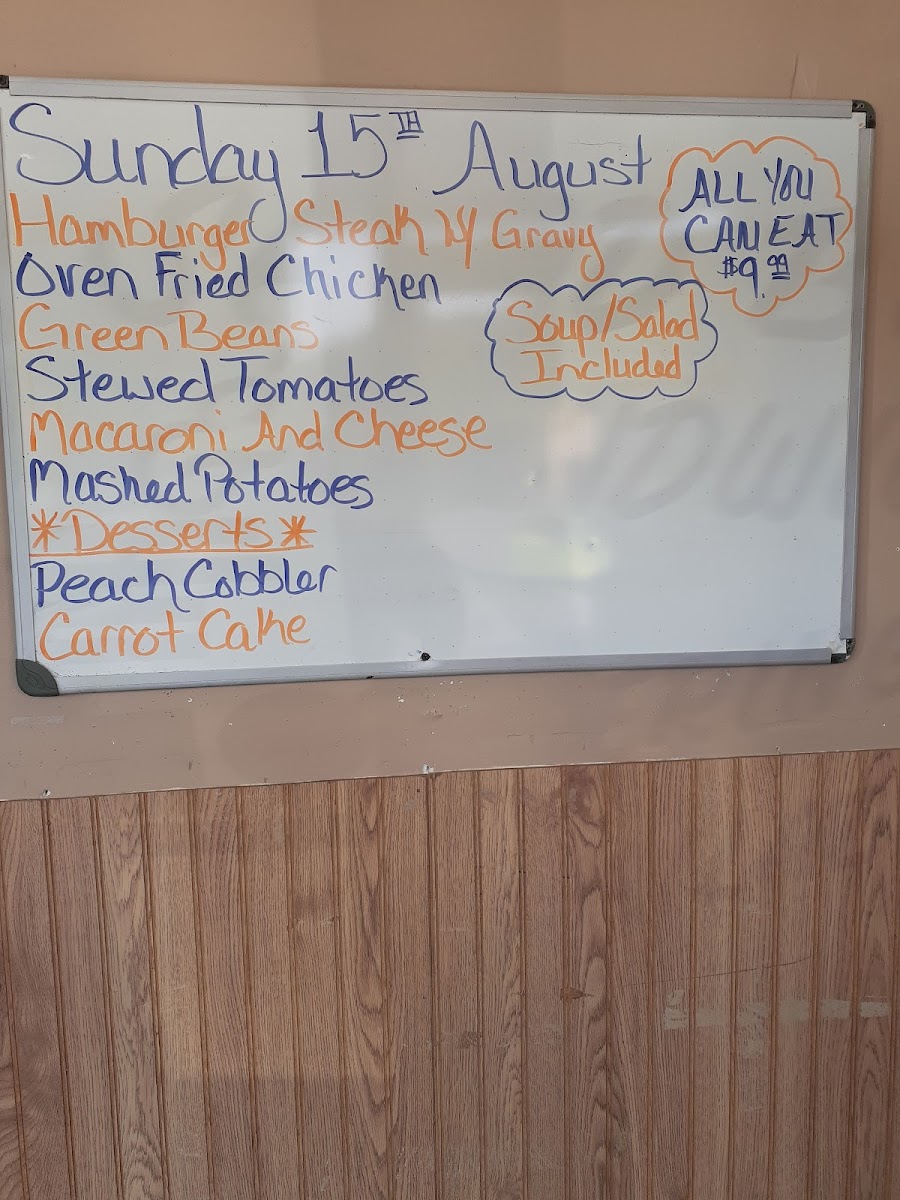 Sunday 15TH August
Hamburger Steak W/ Gravy
Oven Fried Chicken
Green Beans
Stewed Tomatoes
Macaroni And Cheese
Mashed Potatoes
*Desserts*
Peach Cobbler
Carrot Cake
ALL YOU
CAN EAT
$9.99
Soup/Salad
Included